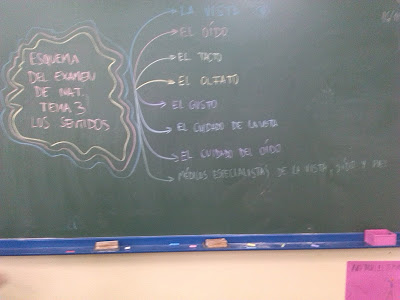 ESQUEMA
DEL EXAMEN
DE NAT.
TEMA 3
LOS SENTIDOS
LA VISTA
EL OÍDO
EL TACTO
EL OLFATO
EL GUSTO
EL CUIDADO DE LA VISTA
EL CUIDADO DEL OÍDO
MÉDICOS ESPECIALISTAS DE LA VISTA, OÍDO Y PIEL